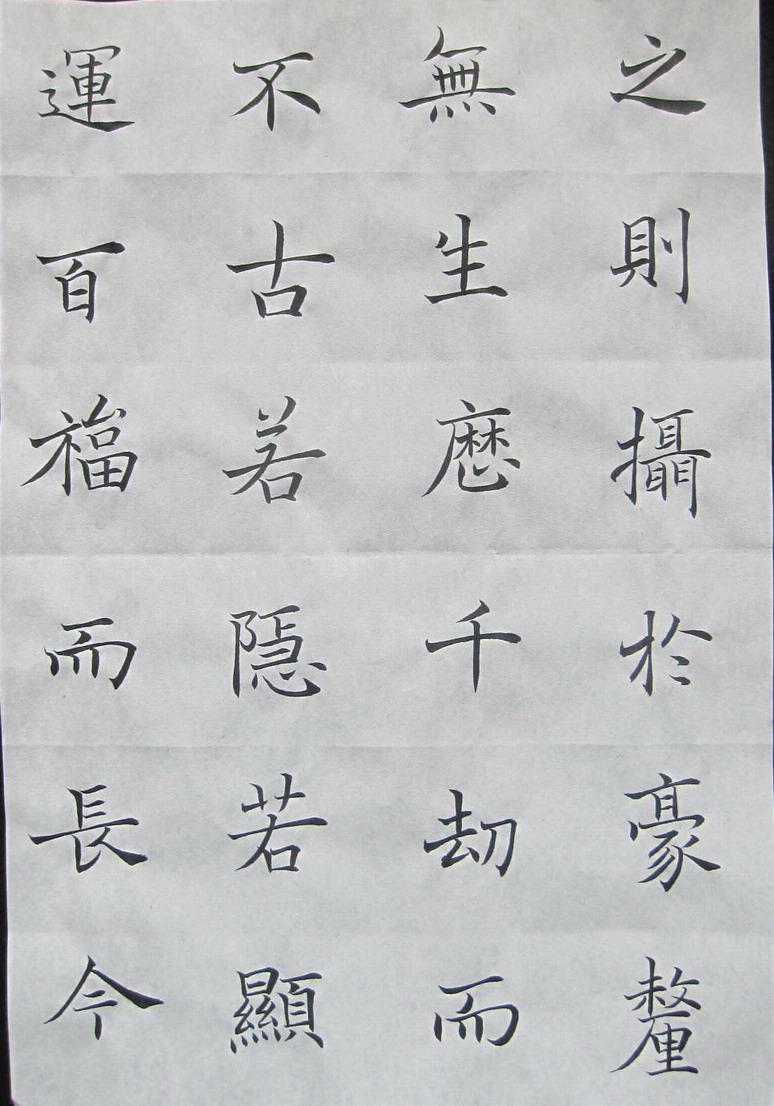 之則攝於豪釐
無生歷千劫而
不古若隱若顯
運百福而長今